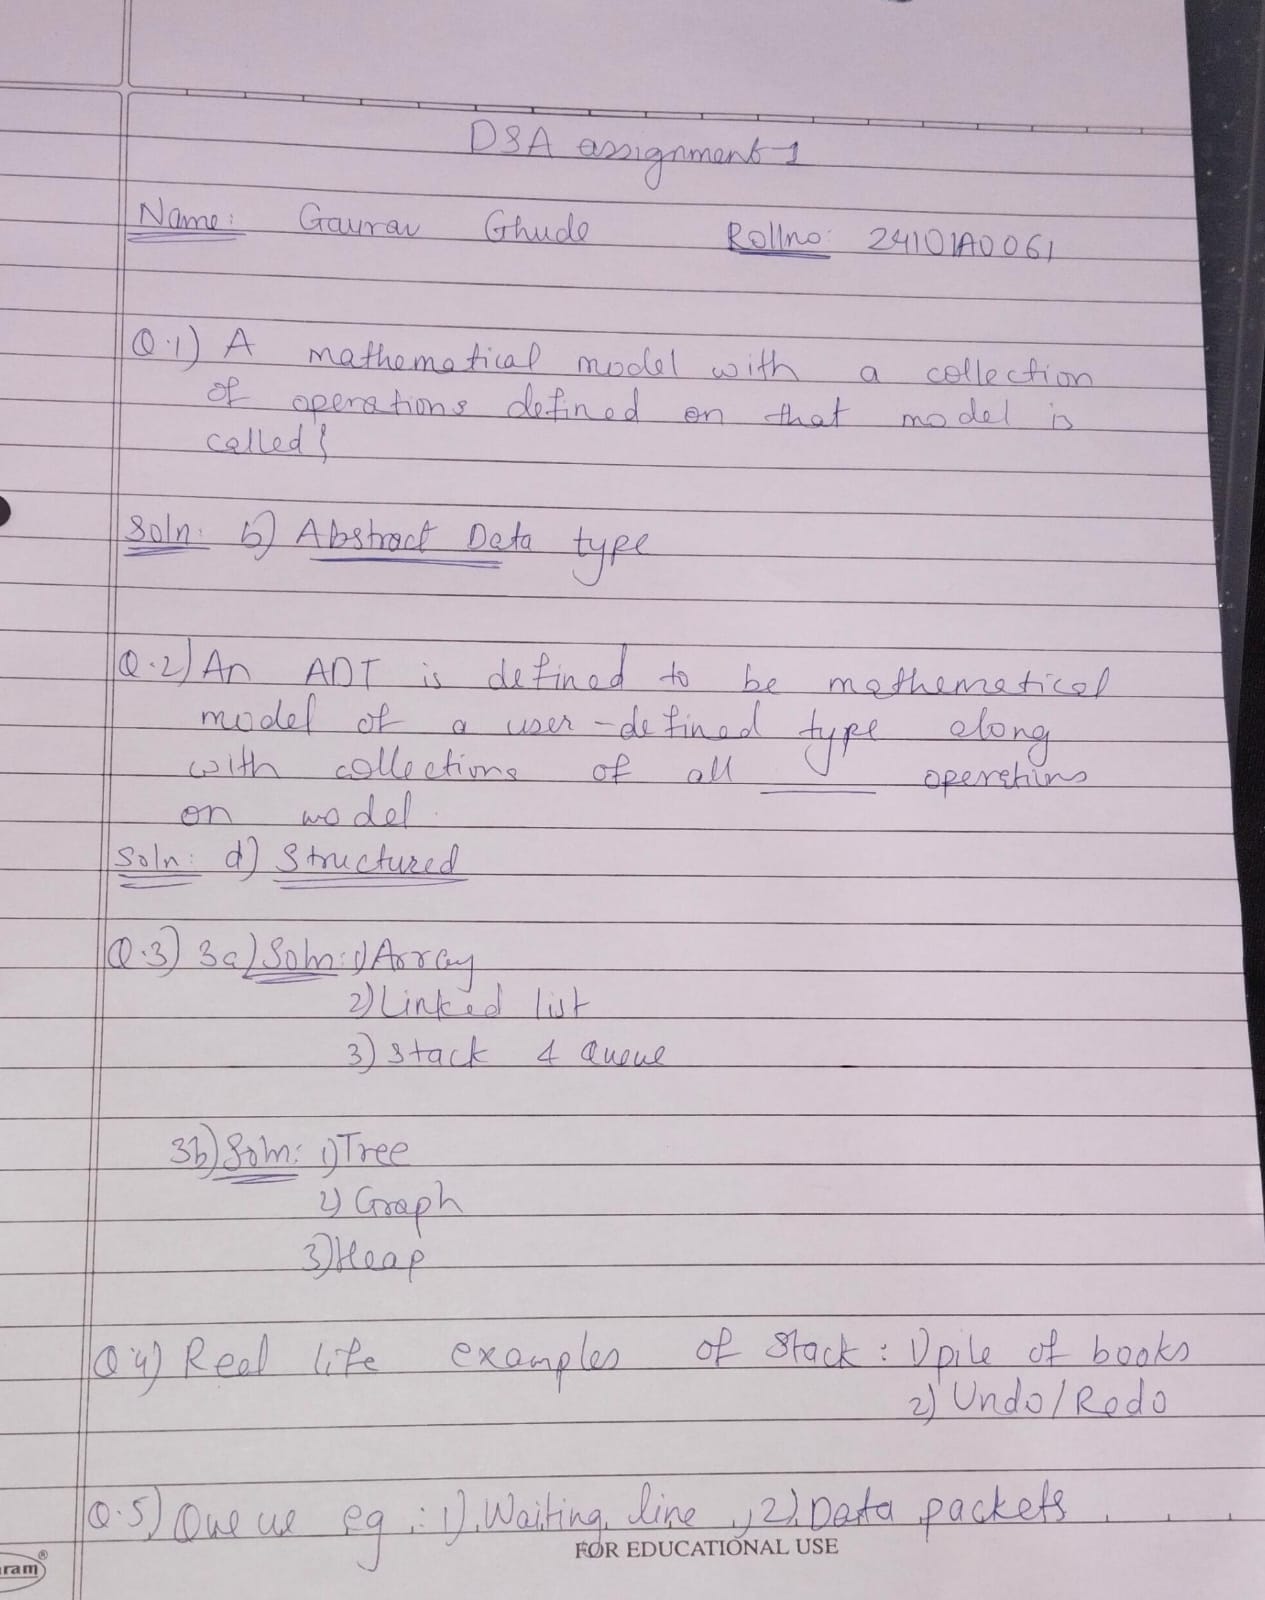 DSA assignment 1
Name: Gaurav Ghude Rollno: 24101A0061
Q.1) A mathematical model with a collection
of operations defined on that model is
called?
Soln: b) Abstract Data type
Q.2) An ADT is defined to be mathematical
model of a user-defined type along
with collections of all ______ operations
on model.
Soln: d) Structured
Q.3) 3a) Soln: 1) Array
2) Linked list
3) Stack & Queue
3b) Soln: 1) Tree
2) Graph
3) Heap
Q.4) Real life examples of Stack: 1) pile of books
2) Undo/Redo
Q.5) Queue eg: 1) Waiting line, 2) Data packets
FOR EDUCATIONAL USE